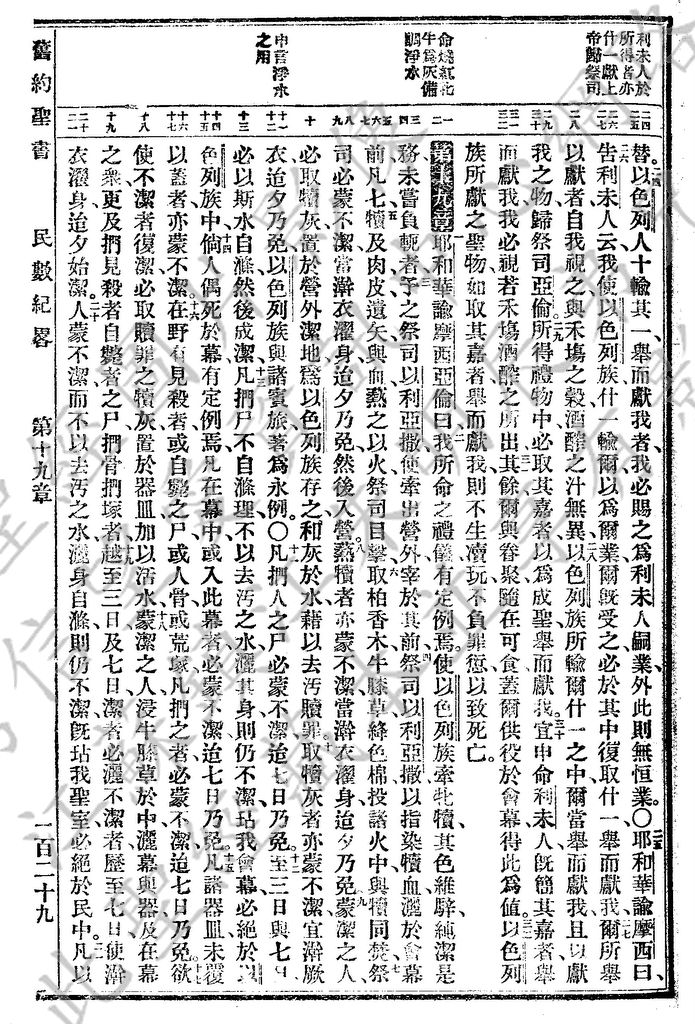 利未人於
所得者亦
什一獻上
帝歸祭司
命燒紅牝
牛為灰備
調淨水
申言淨水
之用
替以色列人十輸其一舉而獻我者我必賜之為利未人嗣業外此則無恒業〇耶和華諭摩西曰
告利未人云我使以色列族什一輸爾以為爾業爾既受之必於其中復取什一舉而獻我爾所舉
以獻者自我視之與禾場之穀酒醡之汁無異以色列族所輸爾什一之中爾當舉而獻我且以獻
我之物歸祭司亞倫所得禮物中必取其嘉者以為成聖舉而獻我宜申命利未人既簡其嘉者舉
而獻我我必視若禾場酒醡之所出其餘爾與眷聚隨在可食蓋爾供役於會幕得此為值以色列
族所獻之聖物如取其嘉者舉而獻我則不生瀆玩不負罪愆以致死亡
第十九章 耶和華諭摩西亞倫曰我所命之禮儀有定例焉使以色列族牽牝犢其色維騂純潔是
務未嘗負軛者予之祭司以利亞撒使牽出營外宰於其前祭司以利亞撒以指染犢血灑於會幕
前凡七犢及肉皮遺矢與血爇之以火祭司目擊取柏香木牛膝草絳色棉投諸火中與犢同焚祭
司必蒙不潔當澣衣濯身迨夕乃免然後入營爇犢者亦蒙不潔當澣衣濯身迨夕乃免蒙潔之人
必取犢灰置於營外潔地為以色列族存之和灰於水藉以去污贖罪取犢灰者亦蒙不潔宜澣厥
衣迨夕乃免以色列族與諸賓旅著為永例〇凡捫人之尸必蒙不潔迨七日乃免至三日與七日
必以斯水自滌然後成潔凡捫尸不自滌理不以去污之水灑其身則仍不潔玷我會幕必絕於以
色列族中倘人偶死於幕有定例焉凡在幕中或入此幕者必蒙不潔迨七日乃免凡諸器皿未覆
以蓋者亦蒙不潔在野有見殺者或自斃之尸或人骨或荒塚凡捫之者必蒙不潔迨七日乃免欲
使不潔者復潔必取贖罪之犢灰置於器皿加以活水蒙潔之人浸牛膝草於中灑幕與器及在幕
之衆更及捫見殺者自斃者之尸捫骨捫塚者越至三日及七日潔者必灑不潔者歷至七日使澣
衣濯身迨夕始潔人蒙不潔而不以去污之水灑身自滌則仍不潔既玷我聖室必絕於民中凡以
舊約聖書 民數紀畧 第十九章 一百二十九